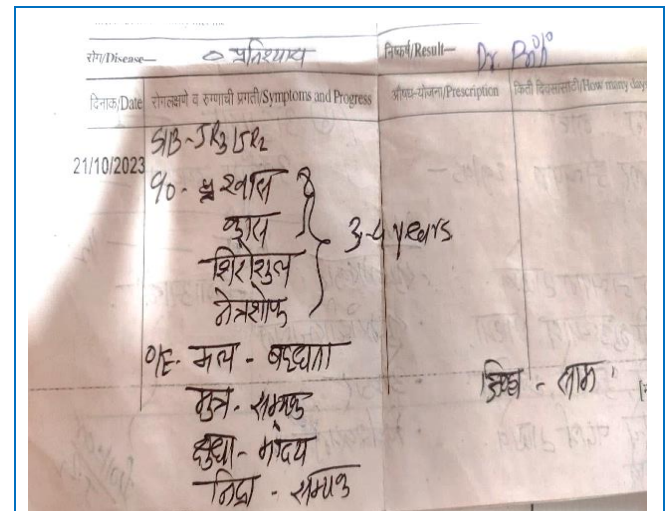 रोग/Disease— प्रतिश्याय निष्कर्ष/Result— Dr.
दिनाक/Date रोगलक्षणे व रुग्णाची प्रगती/Symptoms and Progress औषध-योजना/Prescription किती दिवसासाठी/How many days
S/B - JR3/JR2
21/10/2023
C/o - श्वास
कास
शिरःशुल
नेत्रशोफ
3-4 years
O/E - मल - बद्धता
मुत्र - सम्यक
क्षुधा - मांद्य
निद्रा - सम्यक
जिव्हा - साम